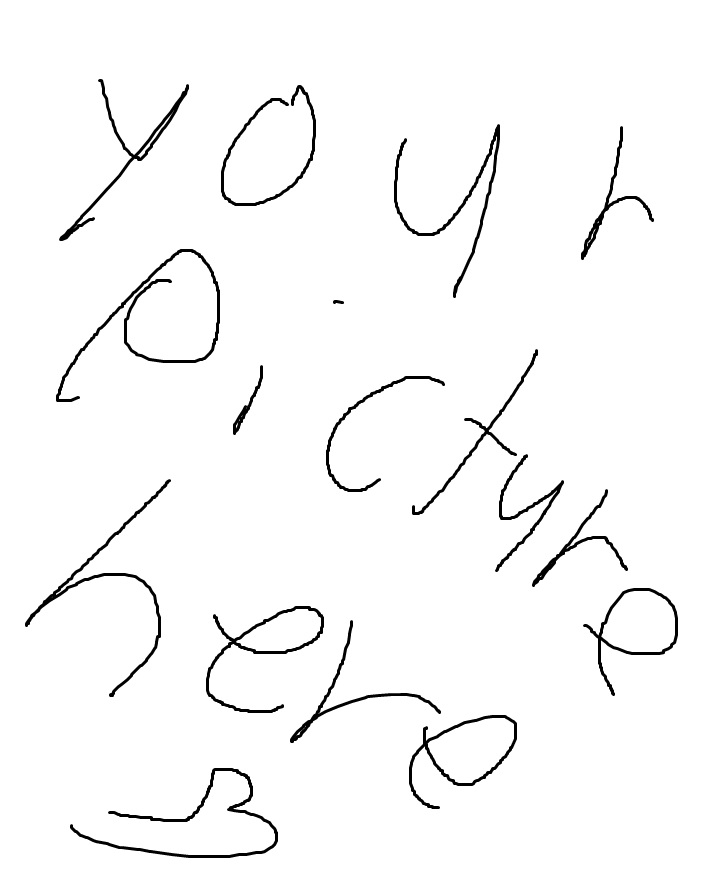 your
picture
here